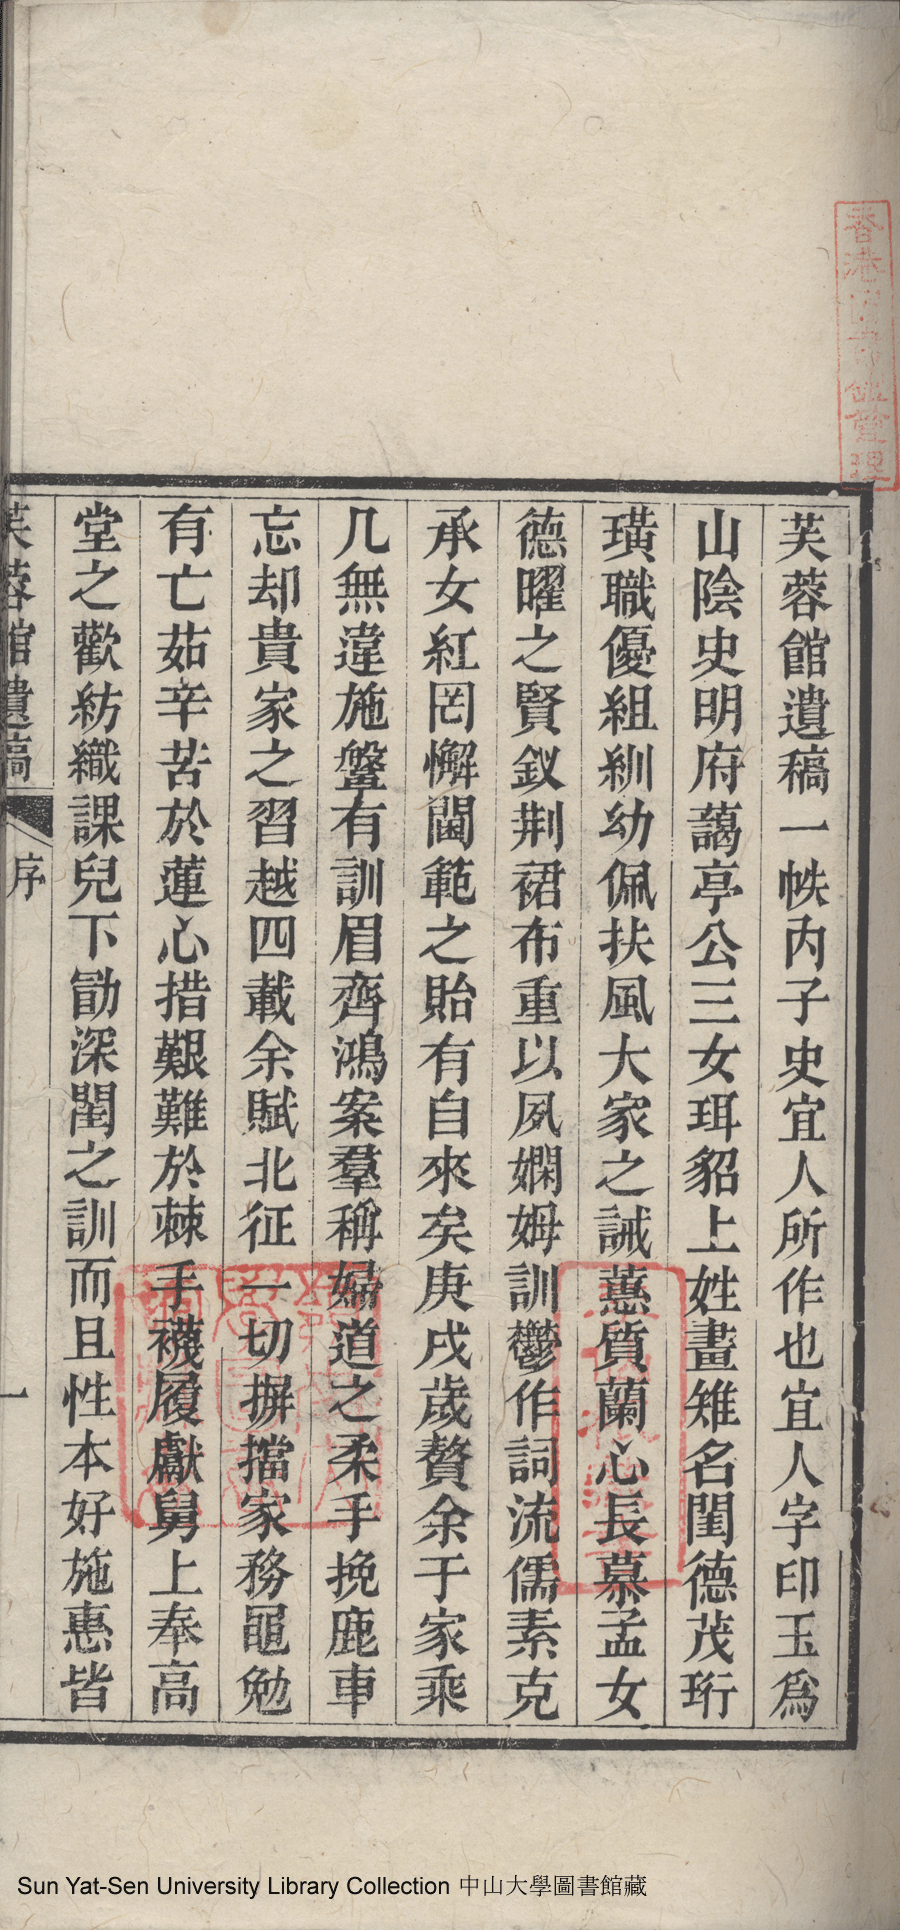 芙蓉館遺稿一帙內子史宜人所作也宜人字印玉爲
山陰史明府藹亭公三女珥貂上姓畫雉名閨德茂珩
璜職優組紃幼佩扶風大家之誡蕙質蘭心長慕孟女
德曜之賢釵荆裙布重以夙嫻姆訓鬱作詞流儒素克
承女紅罔懈閫範之貽有自來矣庚戌歲贅余于家乘
几無違施鞶有訓眉齊鴻案羣稱婦道之柔手挽鹿車
忘却貴家之習越四載余賦北征一切摒擋家務黽勉
有亡茹辛苦於蓮心措艱難於棘手襪履獻舅上奉高
堂之歡紡織課兒下勖深閨之訓而且性本好施惠皆
芙蓉館遺稿 序 一
香港圖書館管理
Sun Yat-Sen University Library Collection 中山大學圖書館藏